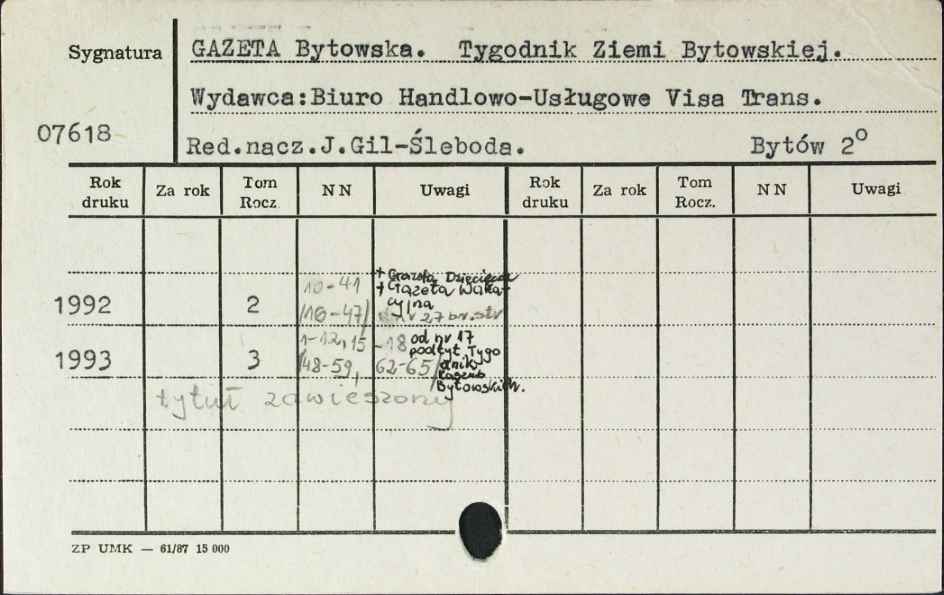 Sygnatura
GAZETA Bytowska. Tygodnik Ziemi Bytowskiej.
Wydawca:Biuro Handlowo-Usługowe Visa Trans.
07618
Red.nacz.J.Gil-Śleboda. Bytów 2°
Rok druku Za rok Tom Rocz. NN Uwagi Rok druku Za rok Tom Rocz. NN Uwagi
+ Gazeta Dziecięca
10-41 + Gazeta Waka-
1992 2 cyjna
/16-47/ nr 27 br. str
1-12, 15 -18 od nr 17
podtyt. Tygo
1993 3 /48-59, 62-65/ dnik
Kaszub
Bytowskich.
tytuł zawieszony
ZP UMK — 61/87 15 000